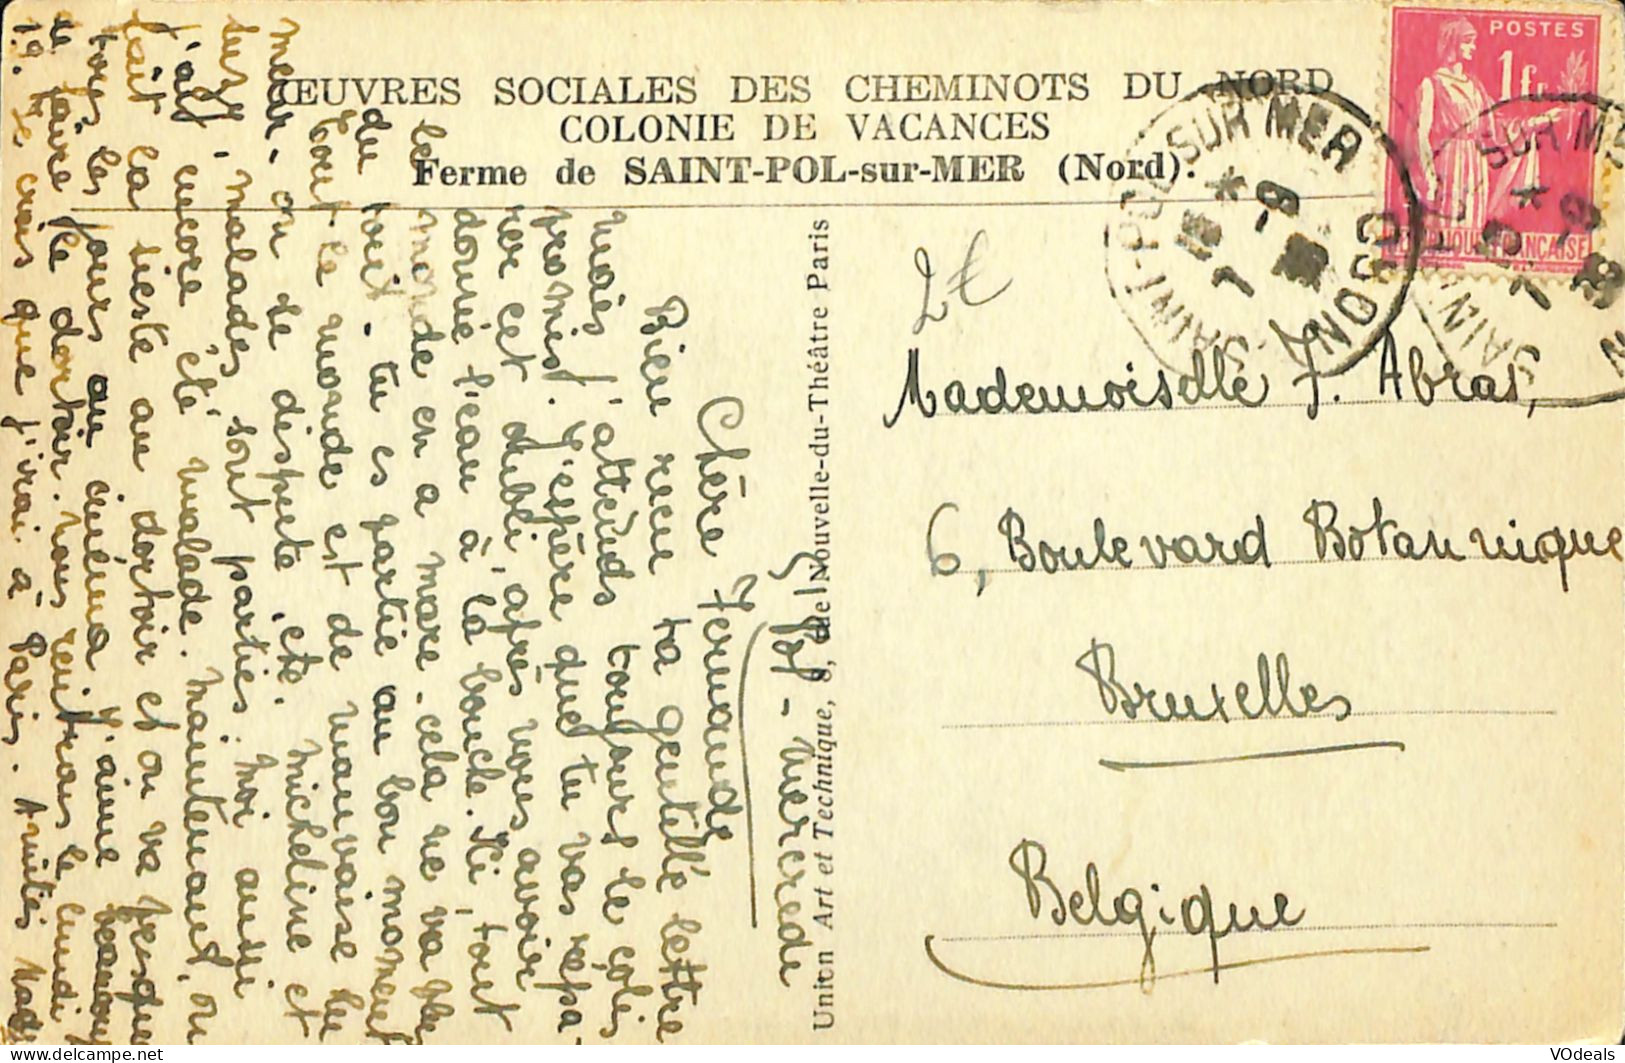 ŒUVRES SOCIALES DES CHEMINOTS DU NORD
COLONIE DE VACANCES
Ferme de SAINT-POL-sur-MER (Nord).
POSTES
1 fr
RÉPUBLIQUE FRANÇAISE
SAINT-POL SUR MER
NORD
2€
Mademoiselle F. Abras,
6, Boulevard Botannique
Bruxelles
Belgique
Union Art et Technique, 8, de Nouvelle-du-Théâtre Paris
mercredi
Chère Fernande
Bien reçu ta gentille lettre
mais j'attends toujours le colis
promis. J'espère que tu vas répa-
rer cet oubli, après nous avoir
donné l'eau à la bouche. Ici, tout le
monde en a mare. cela ne va plus
du tout. tu es partie au bon moment
tout le monde est de mauvaise hu
meur. on se dispute, etc. Micheline et
malades, sont parties. Moi aussi
j'ai encore été malade. Maintenant, on
fait la sieste au dortoir et on va presque
tous les jours au cinéma. J'aime beaucoup
le dortoir. nous rentrons le lundi
19. Je crois que j'irai à Paris. Amitiés
VOdeals